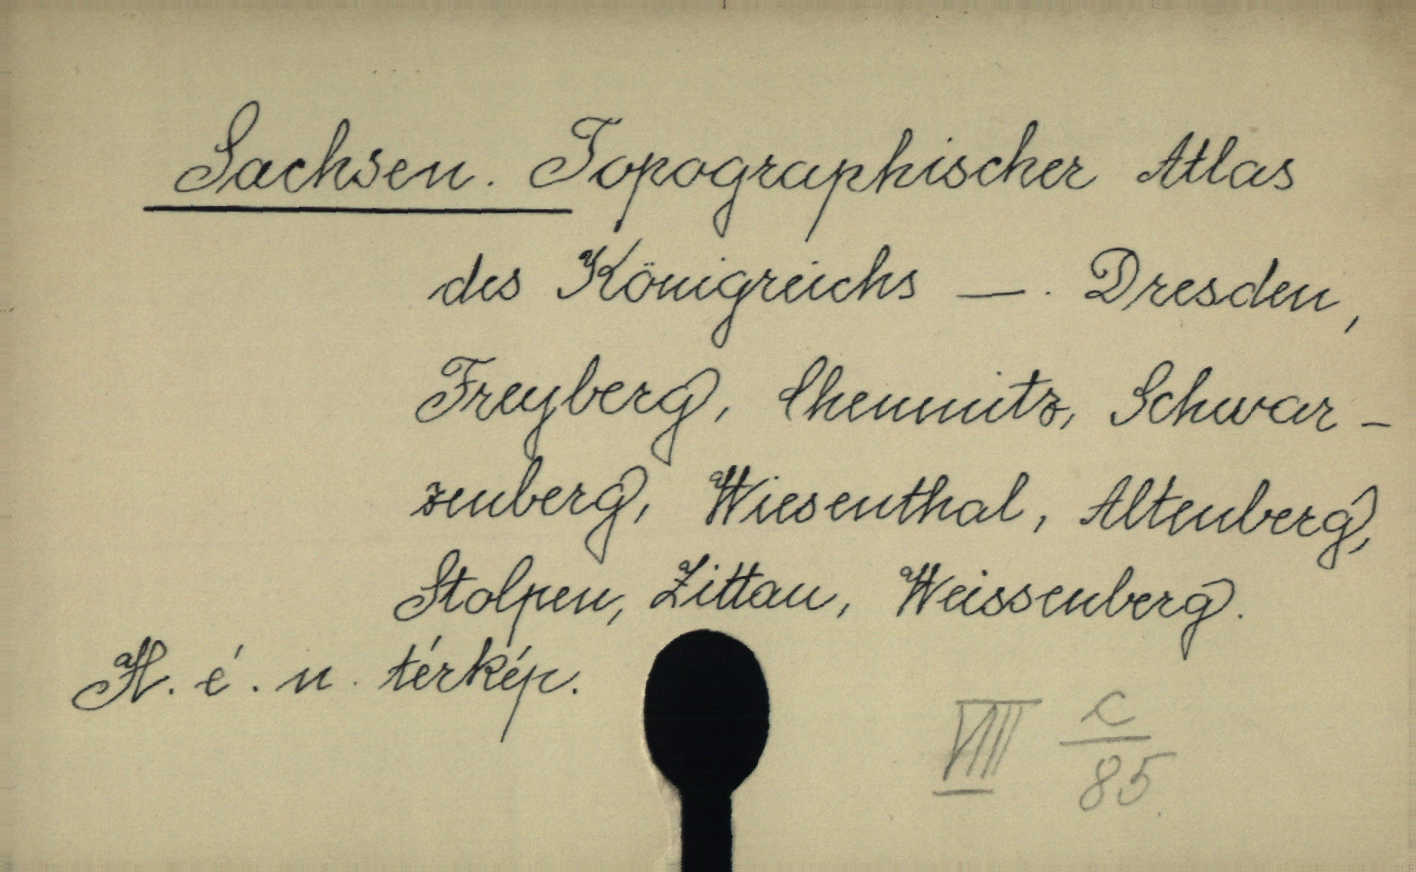 Sachsen. Topographischer Atlas
des Königreichs —. Dresden,
Freyberg, Chemnitz, Schwar-
zenberg, Wiesenthal, Altenberg,
Stolpen, Zittau, Weissenberg.
H. é. n. térkép.
VIII c/85